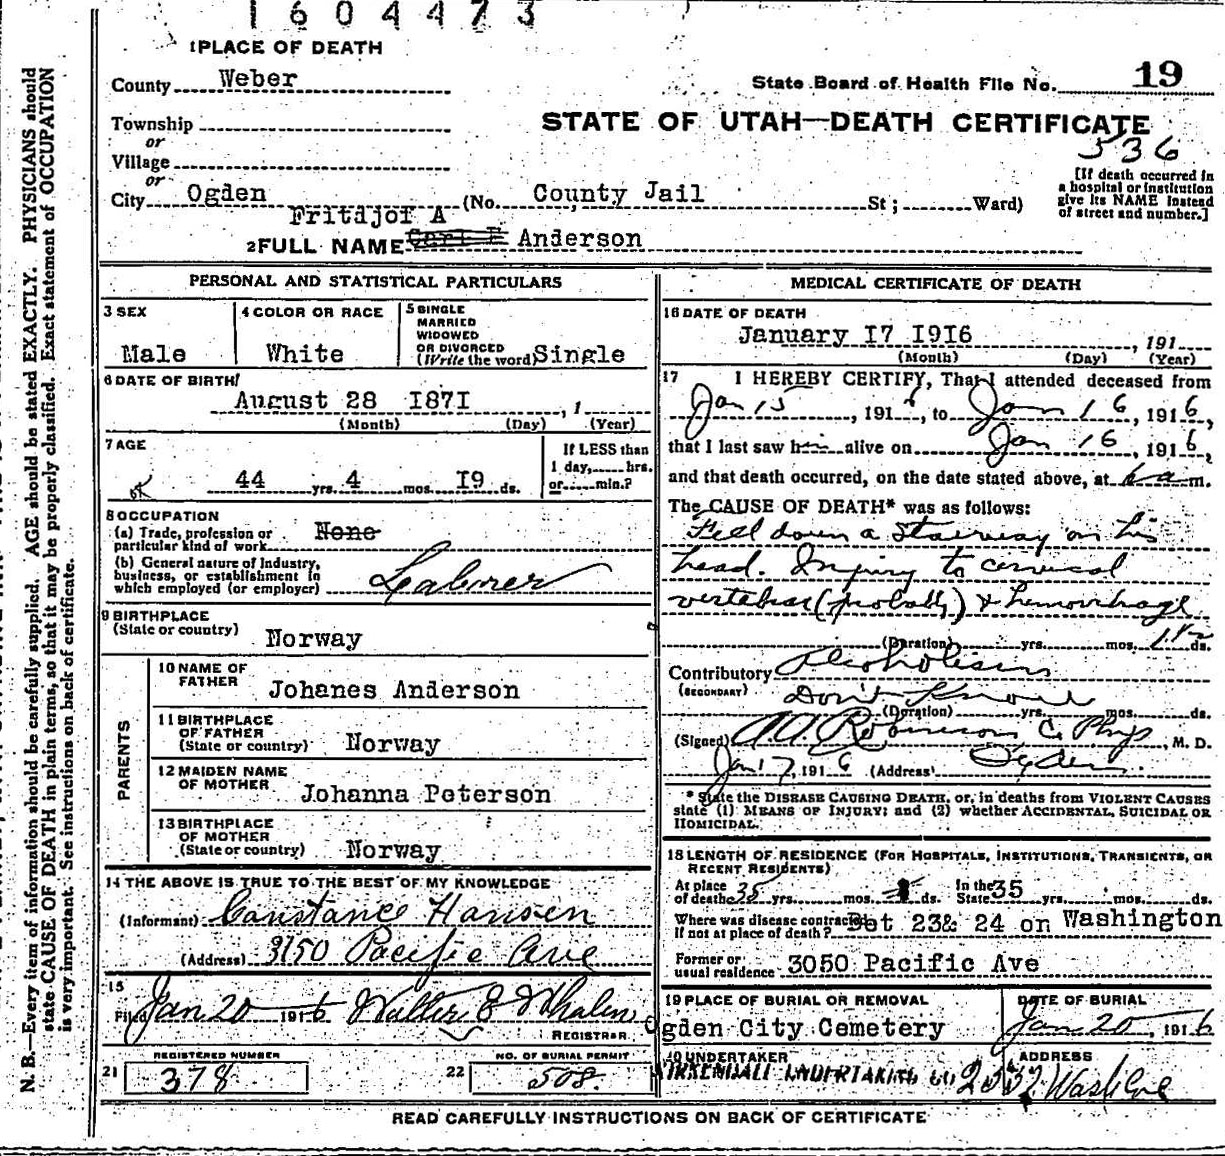 1604473
1 PLACE OF DEATH
County Weber
State Board of Health File No. 19
Township
or
Village
or
STATE OF UTAH—DEATH CERTIFICATE
536
[If death occurred in
a hospital or institution
give its NAME instead
of street and number.]
City Ogden (No. County Jail St; Ward)
Fritdjof A
2 FULL NAME Anderson
PERSONAL AND STATISTICAL PARTICULARS
3 SEX
Male
4 COLOR OR RACE
White
5 SINGLE
MARRIED
WIDOWED
OR DIVORCED
(Write the word) Single
6 DATE OF BIRTH
August 28 1871, 1
(Month) (Day) (Year)
7 AGE
ok 44 yrs. 4 mos. 19 ds.
If LESS than
1 day, hrs.
or min.?
8 OCCUPATION
(a) Trade, profession or
particular kind of work None
(b) General nature of Industry,
business, or establishment in
which employed (or employer) Laborer
9 BIRTHPLACE
(State or country) Norway
PARENTS
10 NAME OF
FATHER Johanes Anderson
11 BIRTHPLACE
OF FATHER
(State or country) Norway
12 MAIDEN NAME
OF MOTHER Johanna Peterson
13 BIRTHPLACE
OF MOTHER
(State or country) Norway
14 THE ABOVE IS TRUE TO THE BEST OF MY KNOWLEDGE
(Informant) Constance Hansen
(Address) 3150 Pacific Ave
15
Filed Jan 20 1916 Walter E Whalen
REGISTRAR
REGISTERED NUMBER
21 378
NO. OF BURIAL PERMIT
22 508.
MEDICAL CERTIFICATE OF DEATH
16 DATE OF DEATH
January 17 1916, 191
(Month) (Day) (Year)
17 I HEREBY CERTIFY, That I attended deceased from
Jan 15, 1916, to Jan 16, 1916,
that I last saw him alive on Jan 16, 1916,
and that death occurred, on the date stated above, at 6 a m.
The CAUSE OF DEATH* was as follows:
Fell down a Stairway on his
head. Injury to cervical
vertebrae (probably) & hemorrhage
(Duration) yrs. mos. 1 1/2 ds.
Contributory Alcoholism
(SECONDARY) Don't Know
(Duration) yrs. mos. ds.
(Signed) A.A. Robinson C. Phys, M. D.
Jan 17, 1916 (Address) Ogden.
* State the DISEASE CAUSING DEATH, or, in deaths from VIOLENT CAUSES
state (1) MEANS OF INJURY; and (2) whether ACCIDENTAL, SUICIDAL OR
HOMICIDAL.
18 LENGTH OF RESIDENCE (FOR HOSPITALS, INSTITUTIONS, TRANSIENTS, OR
RECENT RESIDENTS)
At place
of death 35 yrs. mos. ds. In the State 35 yrs. mos. ds.
Where was disease contracted
If not at place of death? Bet 23& 24 on Washington
Former or
usual residence 3050 Pacific Ave
19 PLACE OF BURIAL OR REMOVAL
Ogden City Cemetery
DATE OF BURIAL
Jan 20, 1916
20 UNDERTAKER
KIRKENDALL UNDERTAKING CO
ADDRESS
2537 Wash Ave
READ CAREFULLY INSTRUCTIONS ON BACK OF CERTIFICATE
N. B.—Every item of information should be carefully supplied. AGE should be stated EXACTLY. PHYSICIANS should
state CAUSE OF DEATH in plain terms, so that it may be properly classified. Exact statement of OCCUPATION
is very important. See instructions on back of certificate.